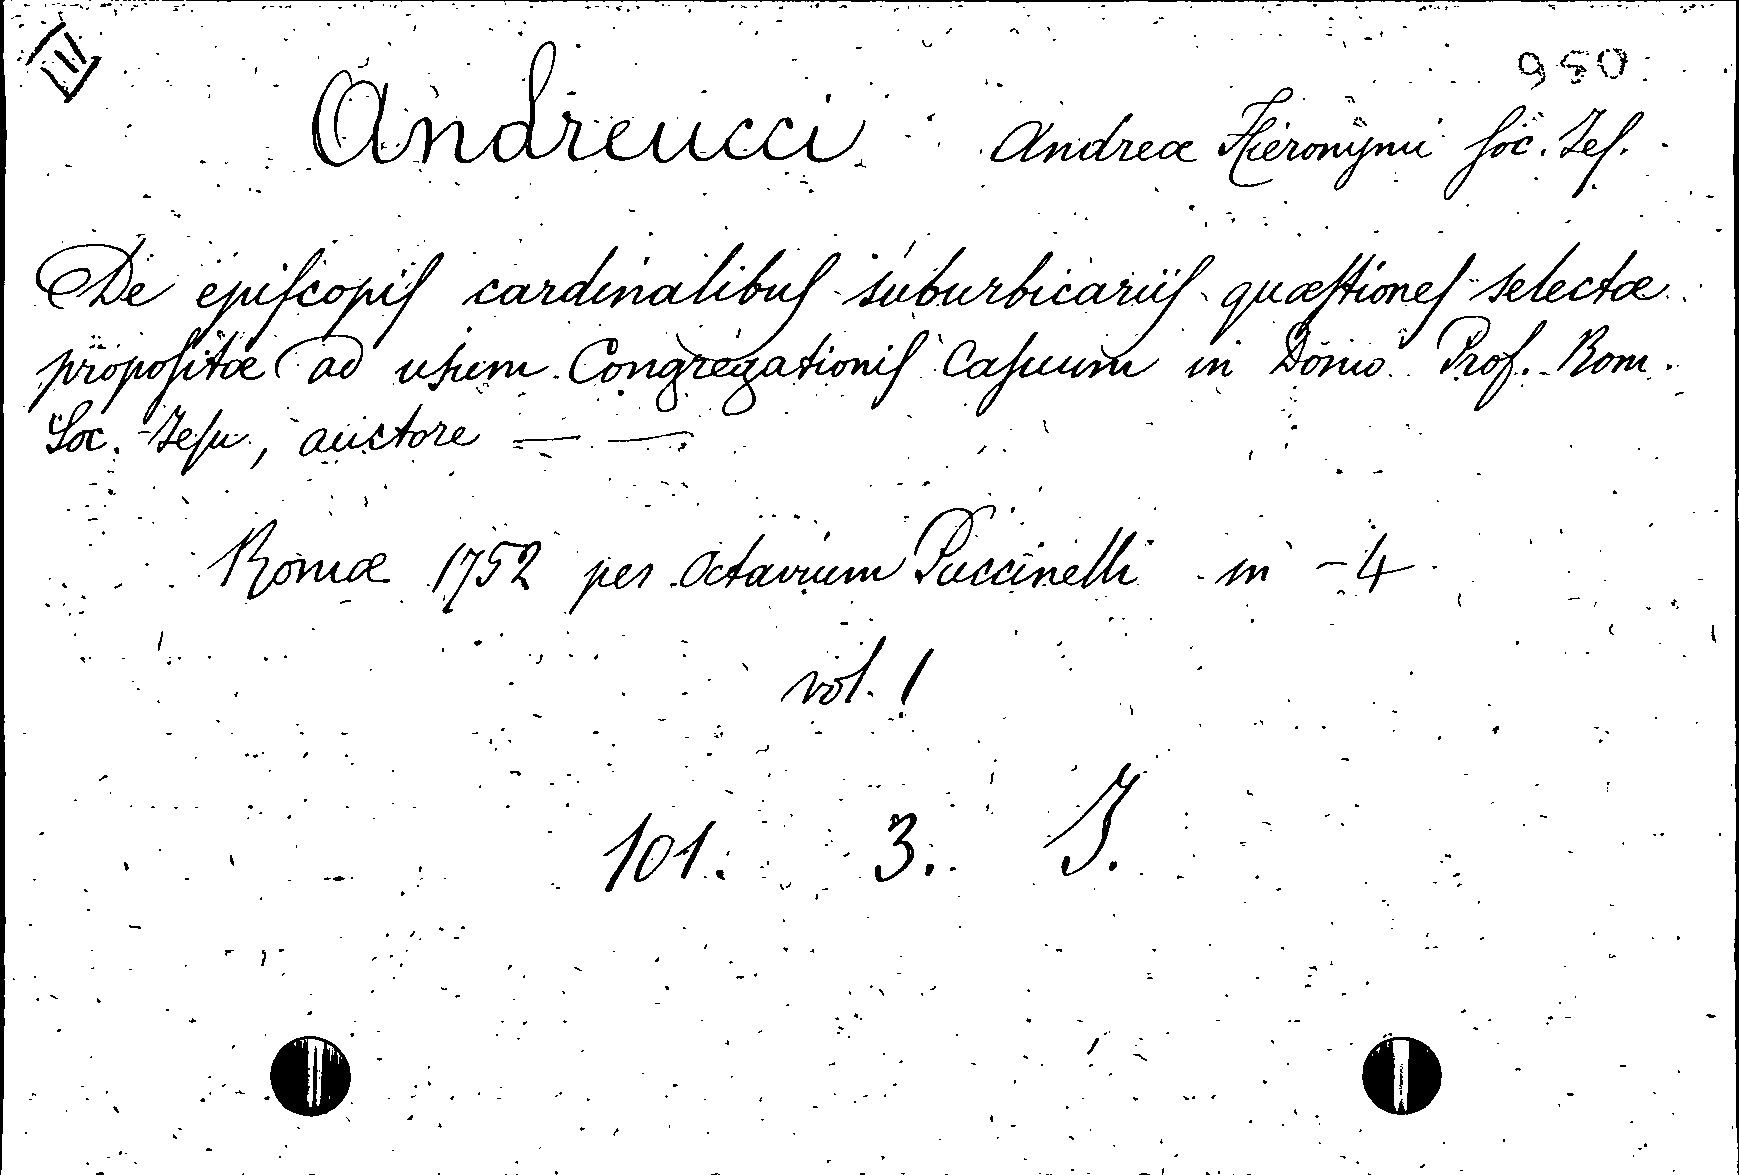 II 950
Andreucci Andreæ Hieronymi Soc. Jes.
De episcopis cardinalibus suburbicariis quæstiones selectæ
propositæ ad usum Congregationis Casuum in Domo Prof. Rom.
Soc. Jesu, auctore — —
Romæ 1752 per Octavium Puccinelli in -4
vol. 1
101. 3. J.